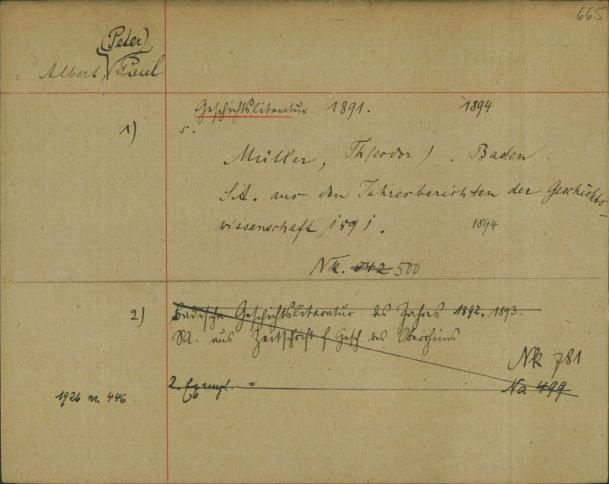 665
(Peter)
Albert, Paul
1) Geschichtsliteratur 1891. 1894
s.
Müller, Th(eodor). Baden.
S.A. aus den Jahresberichten der Geschichts-
wissenschaft 1891. 1894
Nk. 542 500
2) Badische Geschichtsliteratur des Jahres 1892. 1893.
SA. aus Zeitschrift f Gesch des Oberrheins
Nk 781
2. Exempl. = Na 499
1926 nr. 446